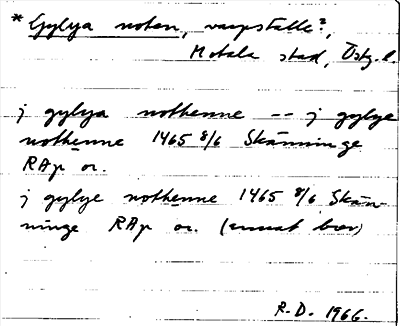 * Gylya noten, varpställe?,
Motala stad, Östg.l.
j gylya nothenne -- j gylye
nothenne 1465 8/6 Skänninge
RAp or.
j gylye nothenne 1465 8/6 Skän-
ninge RAp or. (annat brev)
R.D. 1966.